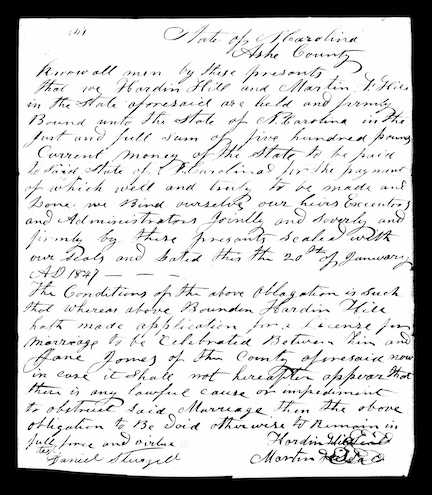 State of N Carolina
Ashe County
Know all men by these presents
that we Hardin Hill and Martin Hill
in the State aforesaid are held and firmly
Bound unto the State of N. Carolina in the
Just and full sum of five hundred pounds
Current money of the State to be paid
to Said State of N Carolina for the payment
of which well and truly to be made and
Done we Bind ourselves our heirs Executors
and Administrators Jointly and Severly and
firmly by these presents Sealed with
our Seals and Dated this the 20th of Januwary
AD 1847
The Conditions of the above Oblagation is Such
that whereas above Bounden Hardin Hill
hath made application for a License for
marriage to be Celebrated Between him and
Jane Jones of the County aforesaid now
in case it Shall not hereafter appear that
there is any lawful cause or impediment
to obstruct Said Marriage then the above
obligation to Be Void otherwise to Remain in
full force and virtue
Hardin Hill Seal
Daniel Sturgill
Martin Hill